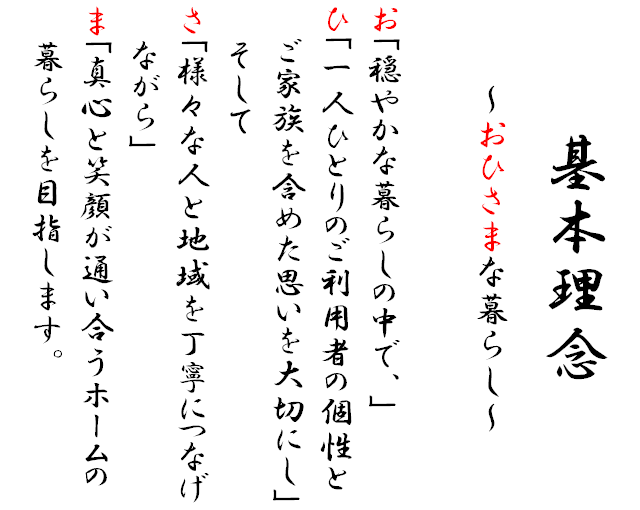 基本理念
～おひさまな暮らし～
お「穏やかな暮らしの中で、」
ひ「一人ひとりのご利用者の個性と
ご家族を含めた思いを大切にし」
そして
さ「様々な人と地域を丁寧につなげ
ながら」
ま「真心と笑顔が通い合うホームの
暮らしを目指します。